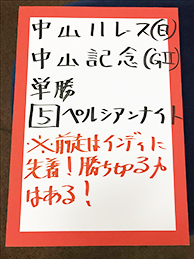 中山11レース(日)
中山記念(GII)
単勝
5 ペルシアンナイト
※前走はインディに
先着!勝ち切る力
はある!